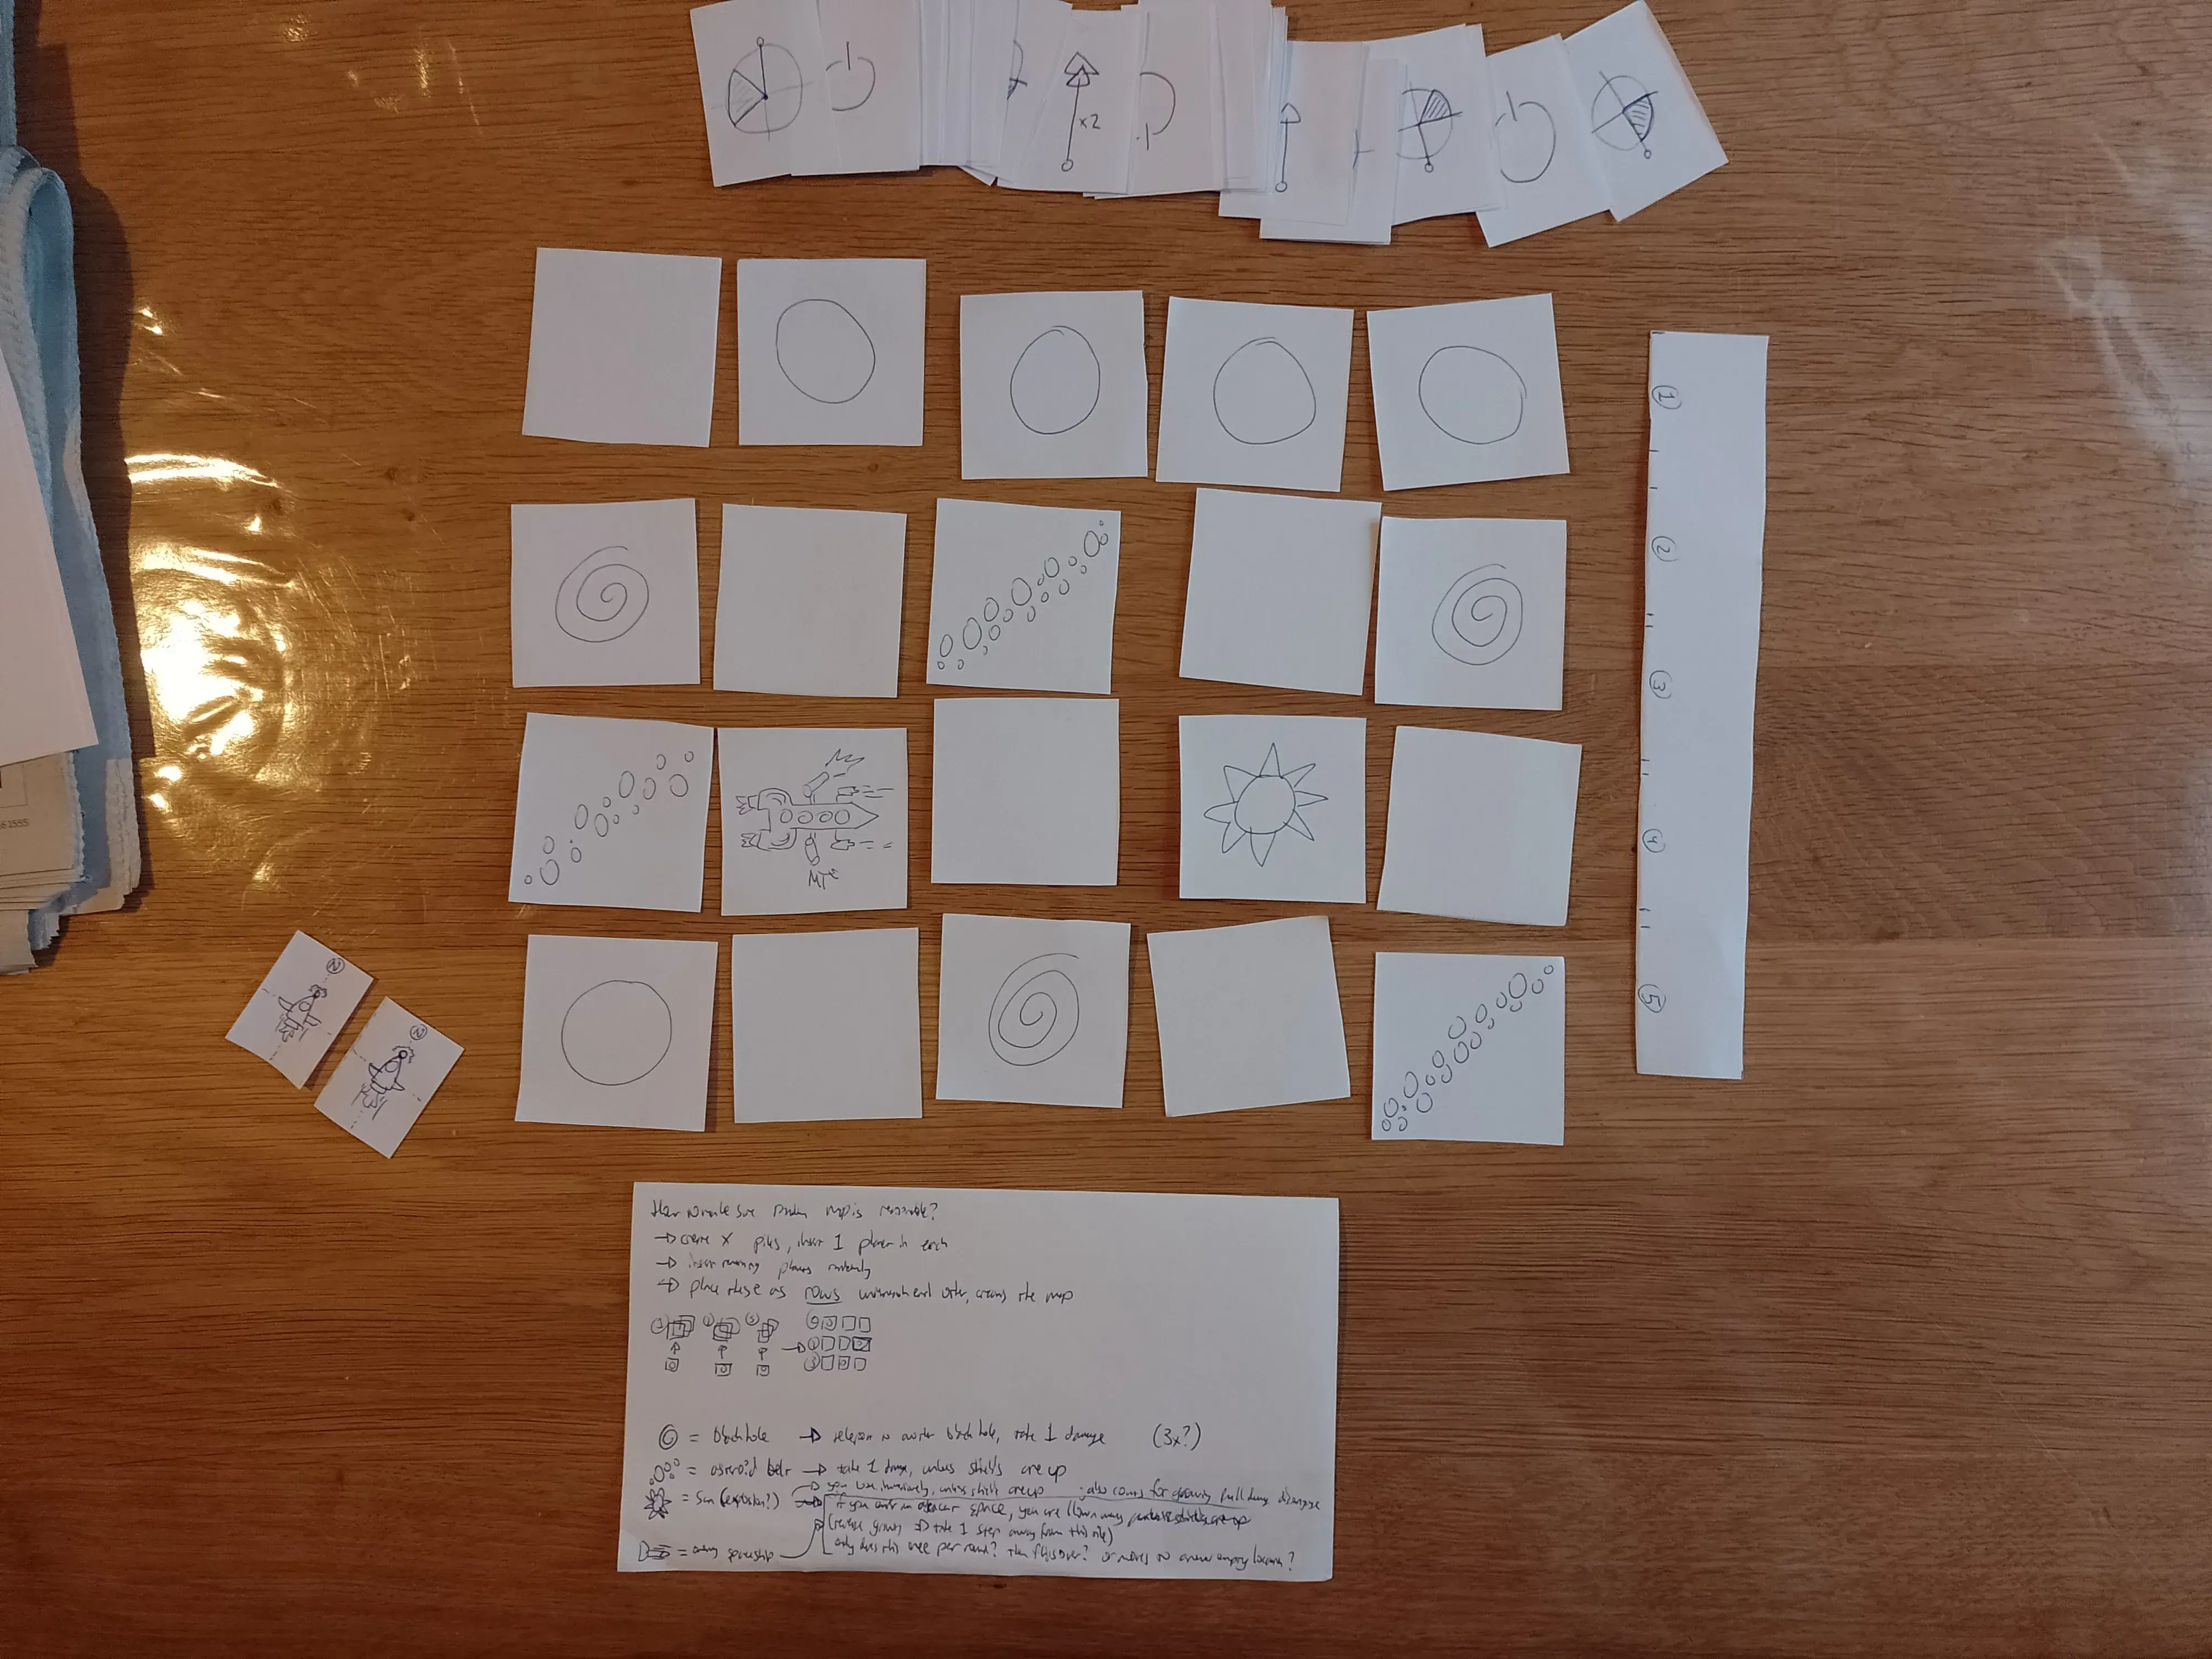 x2
1
2
3
4
5
2
2
How to make sure random map is reasonable?
→ create X piles, insert 1 planet in each
→ insert remaining planets randomly
→ place these as rows underneath each other, creating the map
= black hole → teleport to another black hole, take 1 damage (3x?)
= asteroid belt → take 1 dmg, unless shields are up
= Sun (explosion?) → you lose immediately, unless shields are up
if you enter an adjacent space, you are blown away
→ take 1 step away from this tile)
= enemy spaceship only does this once per round? Then flips over? or moves to a new empty location?
61555